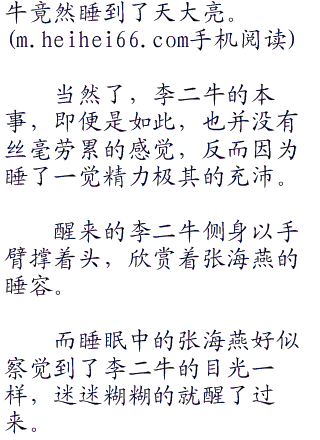 牛竟然睡到了天大亮。
(m.heihei66.com手机阅读)
当然了，李二牛的本
事，即便是如此，也并没有
丝毫劳累的感觉，反而因为
睡了一觉精力极其的充沛。
醒来的李二牛侧身以手
臂撑着头，欣赏着张海燕的
睡容。
而睡眠中的张海燕好似
察觉到了李二牛的目光一
样，迷迷糊糊的就醒了过
来。